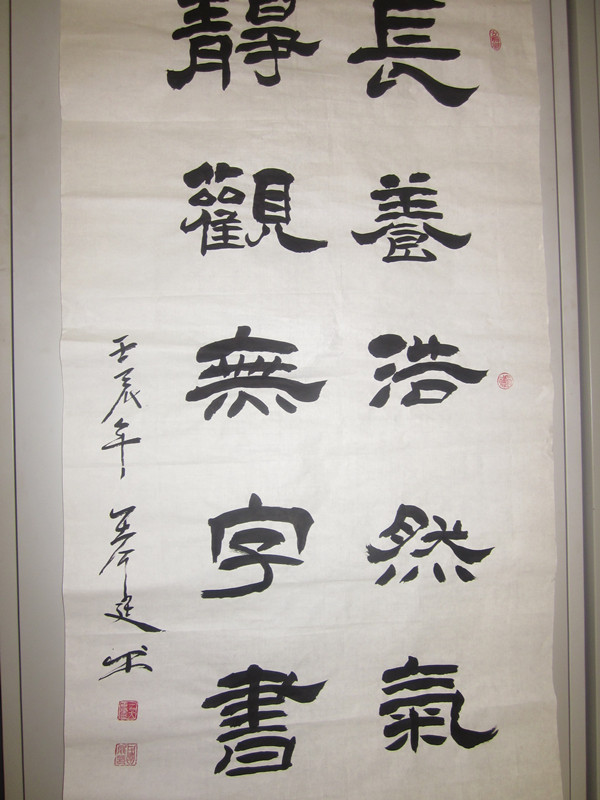 長養浩然氣
靜觀無字書
壬辰年